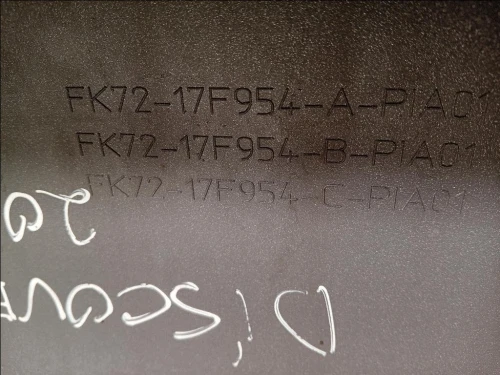 FK72-17F954-A-PIA01
FK72-17F954-B-PIA01
FK72-17F954-C-PIA01
DISCOV
20